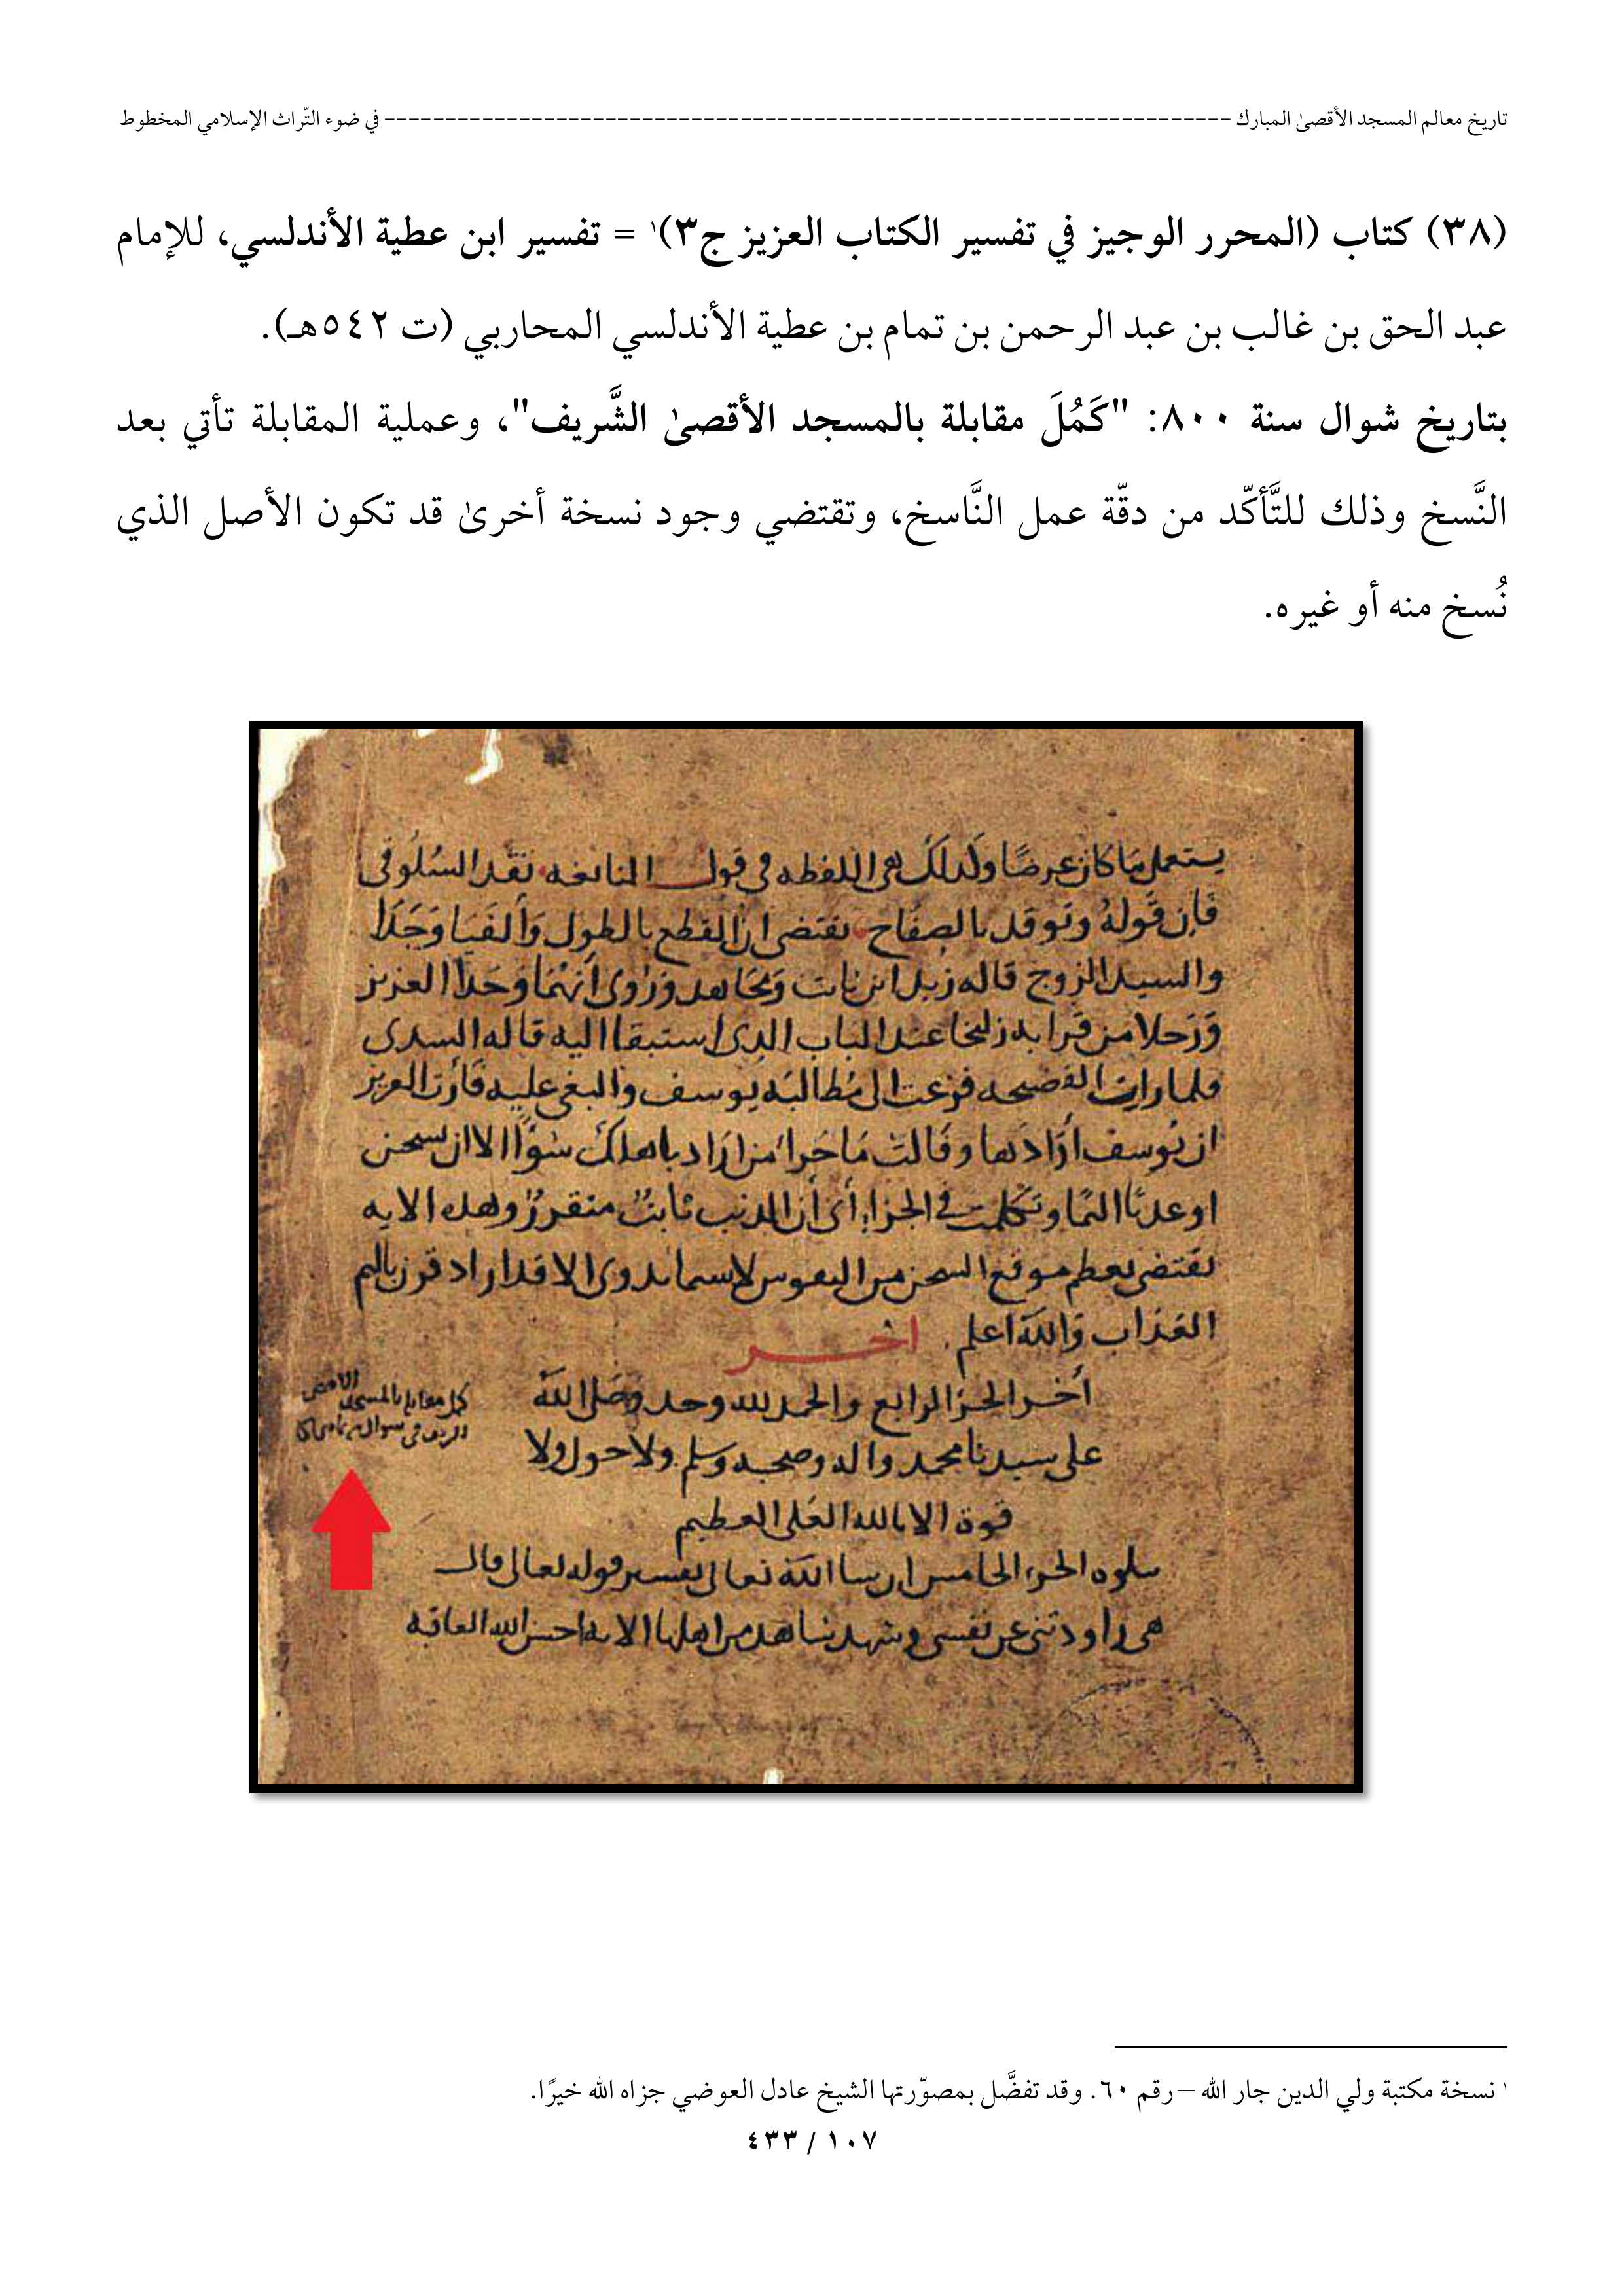 تاريخ معالم المسجد الأقصىٰ المبارك ---------------------------------------------------------------------- في ضوء التّراث الإسلامي المخطوط
(٣٨) كتاب (المحرر الوجيز في تفسير الكتاب العزيز ج٣)١ = تفسير ابن عطية الأندلسي، للإمام
عبد الحق بن غالب بن عبد الرحمن بن تمام بن عطية الأندلسي المحاربي (ت ٥٤٢هـ).
بتاريخ شوال سنة ٨٠٠: "كَمُلَ مقابلة بالمسجد الأقصىٰ الشَّريف"، وعملية المقابلة تأتي بعد
النَّسخ وذلك للتَّأكّد من دقّة عمل النَّاسخ، وتقتضي وجود نسخة أخرىٰ قد تكون الأصل الذي
نُسخ منه أو غيره.
يستعمل ما كان عرضًا ولذلك هي اللفظه في قول النابغه نقد السلوقي
فإن قوله وتوقد بالصفاح يقتضي ان القطع بالطول وألفيا وجدا
والسيد الزوج قاله زيد ابن ثابت ومجاهد وروى أنهما وجدا العزيز
ورجلا من قرابه زليخا عند الباب الذي استبقا اليه قاله السدى
فلما رات الفضيحه فزعت الى مطالبه يوسف والبغى عليه فأرت العزيز
ان يوسف أرادها وقالت ما جزا من اراد باهلك سوًا الا ان يسجن
او عذاب اليم وتكلمت في الجزا أي أن الذنب ثابت متقرر وهذه الايه
تقتضى بعظم موقع السجن من النفوس لاسيما بذوى الاقدار اذ قرن باليم
العذاب والله اعلم اخر
أخر الجز الرابع والحمد لله وحده وصلى الله
على سيدنا محمد واله وصحبه وسلم ولا حول ولا
قوة الا بالله العلى العظيم
يتلوه الجزء الخامس ان شا الله تعالى تفسير قوله تعالى قال
هى راودتنى عن نفسى وشهد شاهد من اهلها الايه احسن الله العاقبه
كمل مقابله بالمسجد الاقصى
الشريف في شوال
١ نسخة مكتبة ولي الدين جار الله – رقم ٦٠. وقد تفضَّل بمصوّرتها الشيخ عادل العوضي جزاه الله خيرًا.
١٠٧ / ٤٣٣